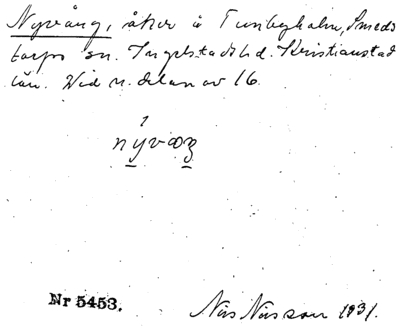 Nyvång, åker å Tunbyholm, Smeds
torps sn. Ingelstads hd. Kristianstad
län. Vid n. delen av 16.
Nr 5453. Nils Nilsson 1931.